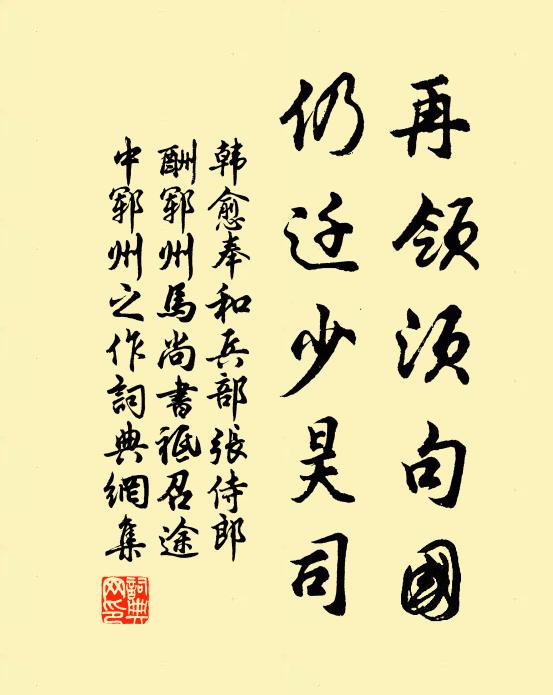 再领须句國
仍迁少昊司
韩愈奉和兵部張侍郎
酬郓州馬尚書祗召途
中郓州之作詞典網集